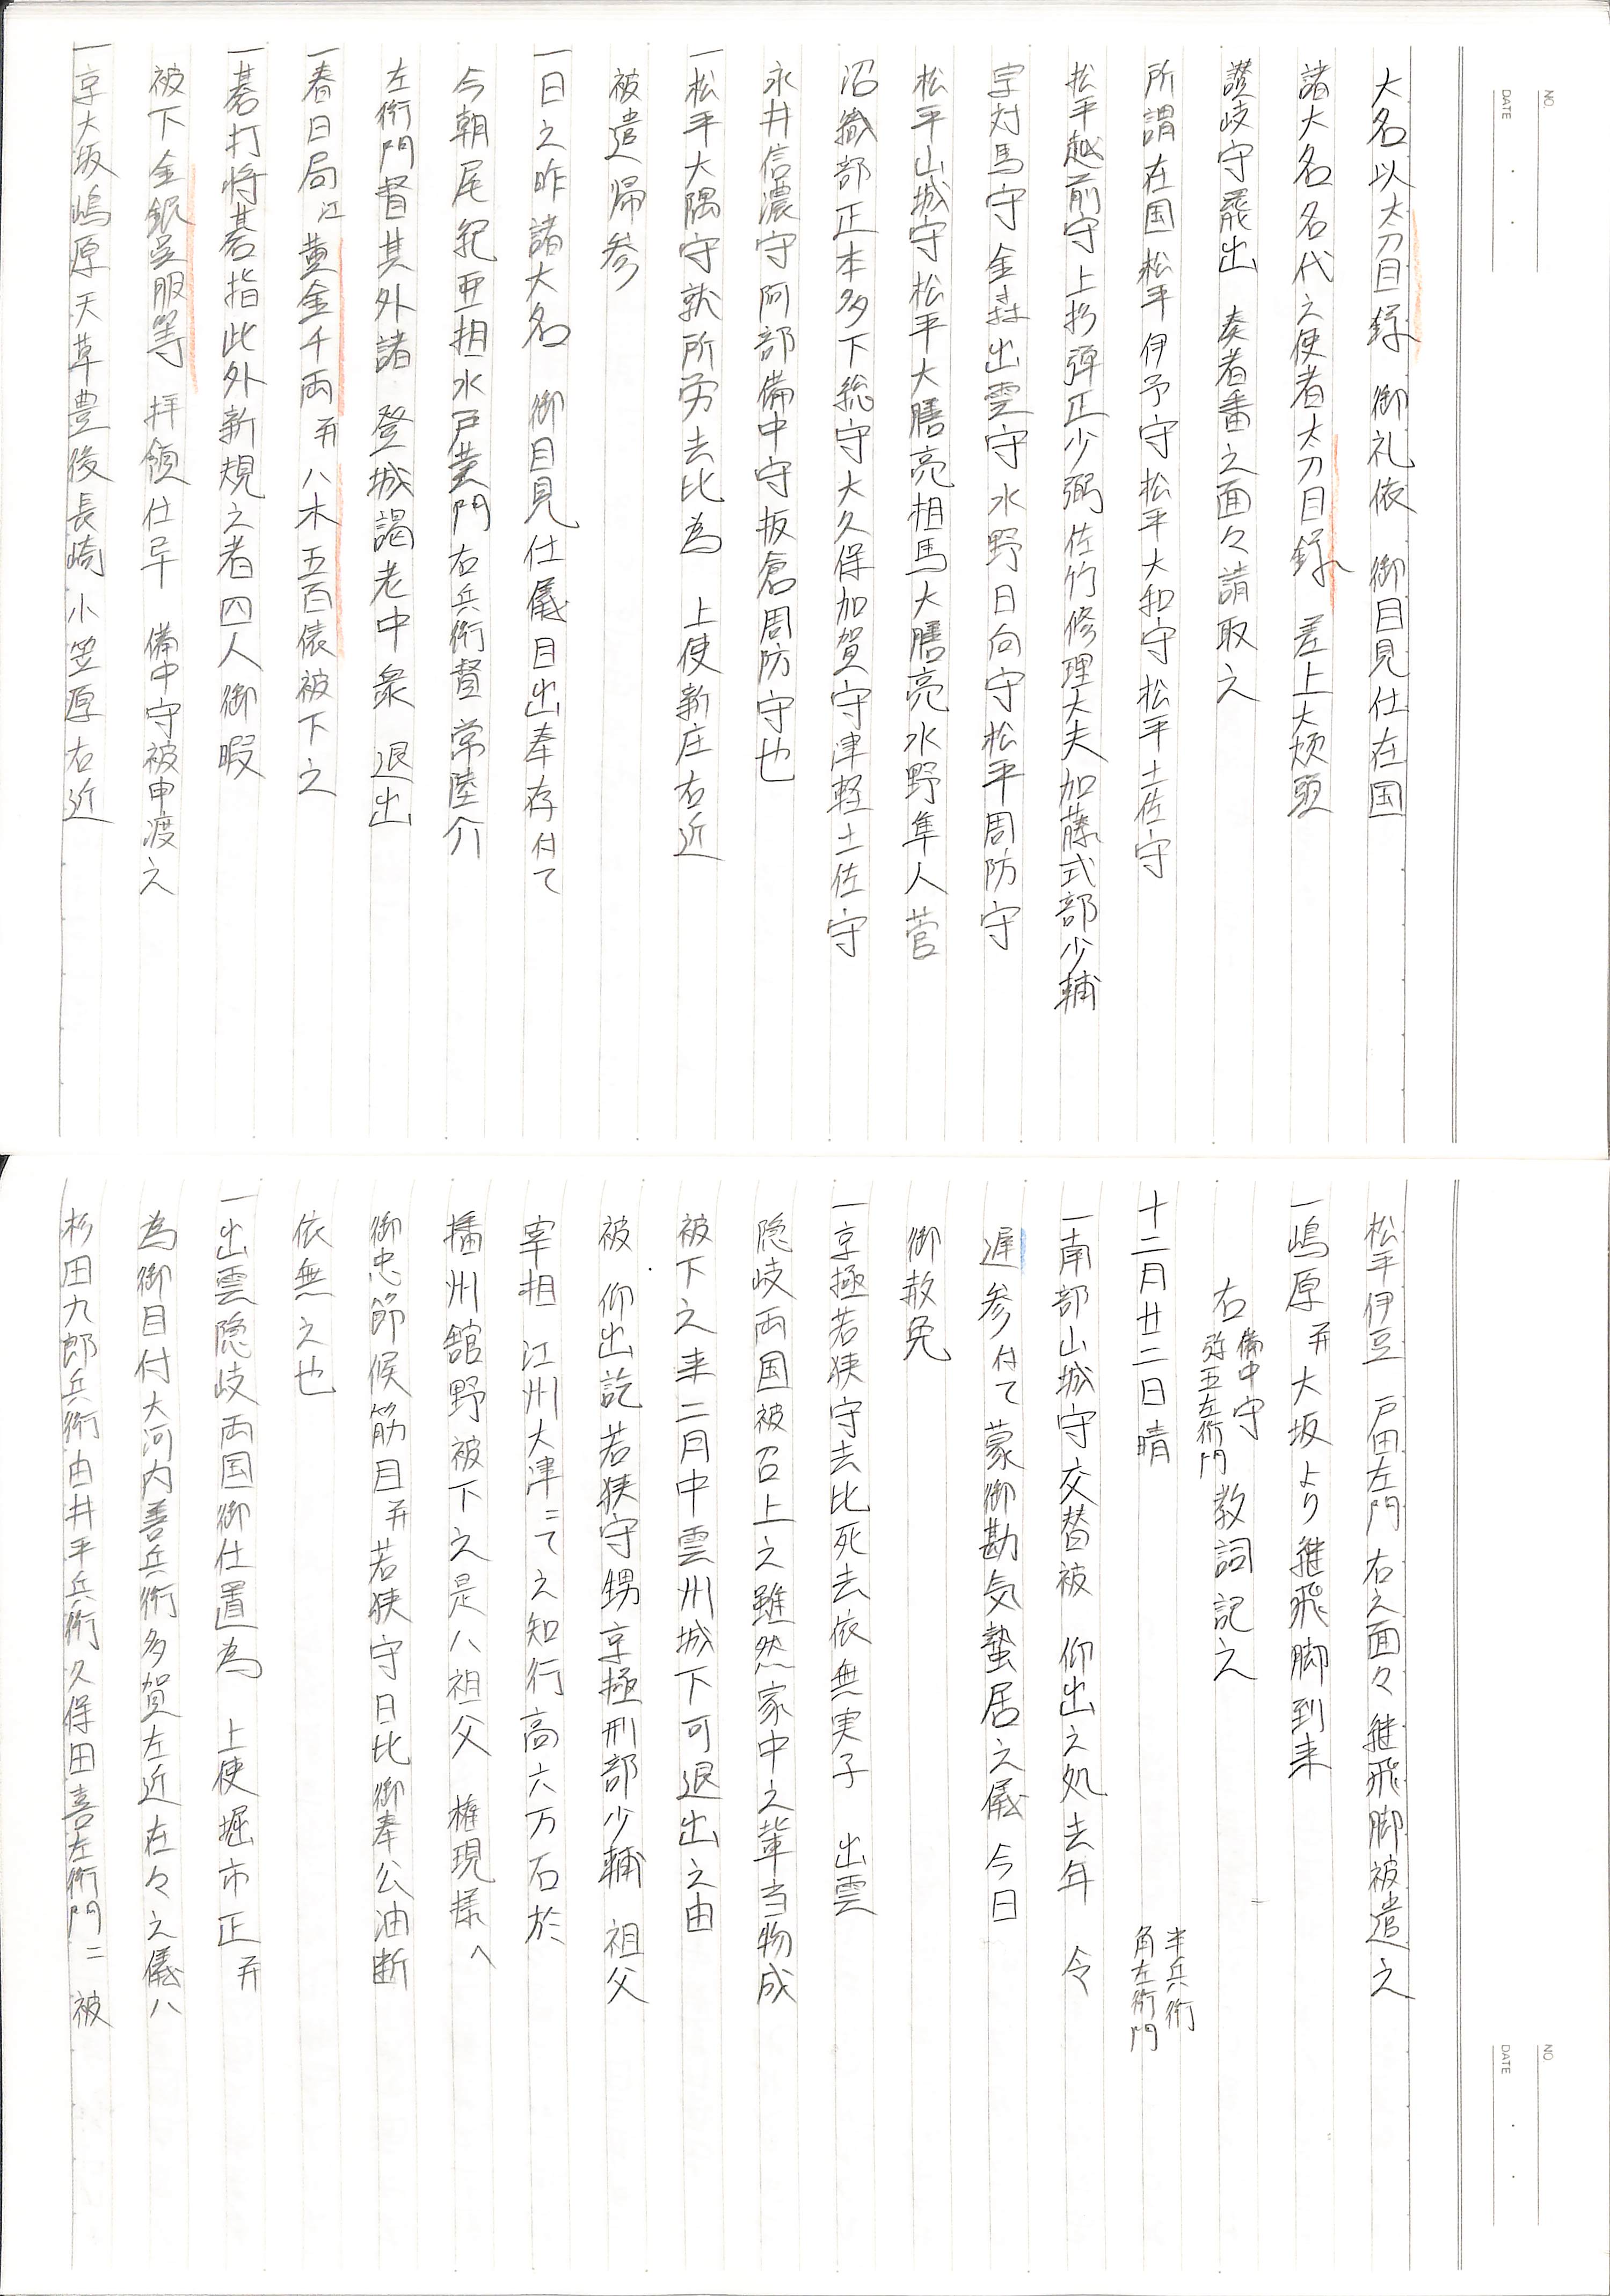 NO.
DATE
大名以太刀目録　御礼依　御目見仕在国
諸大名名代之使者太刀目録　差上大炊頭
讃岐守罷出　奏者番之面々請取之
所謂在国松平伊予守松平大和守松平土佐守
松平越前守上杉弾正少弼佐竹修理大夫加藤式部少輔
宗対馬守金森出雲守水野日向守松平周防守
松平山城守松平大膳亮相馬大膳亮水野隼人菅
沼織部正本多下総守大久保加賀守津軽土佐守
永井信濃守阿部備中守板倉周防守也
一松平大隅守就所労去比為　上使新庄右近
被遣帰参
一日之昨諸大名　御目見仕儀目出奉存付て
今朝尾紀亜相水戸黄門右兵衛督常陸介
左衛門督其外諸　登城謁老中衆　退出
一春日局江黄金千両并八木五百俵被下之
一碁打将碁指此外新規之者四人御暇
被下金銀呉服等　拝領仕旨　備中守被申渡之
一京大坂嶋原天草豊後長崎小笠原右近
NO.
DATE
松平伊豆　戸田左門　右之面々継飛脚被遣之
一嶋原并大坂より継飛脚到来
右備中守弥五左衛門　教詞記之
十二月廿二日晴　半兵衛角左衛門
一南部山城守交替被　仰出之処去年　令
遅参付て蒙御勘気蟄居之儀　今日
御赦免
一京極若狭守去比死去依無実子　出雲
隠岐両国被召上之雖然家中之輩当物成
被下之来二月中雲州城下可退出之由
被　仰出訖若狭守甥京極刑部少輔　祖父
宰相　江州大津ニて之知行高六万石於
播州舘野被下之是ハ祖父　権現様へ
御忠節候筋目并若狭守日比御奉公油断
依無之也
一出雲隠岐両国御仕置為　上使堀市正并
為御目付大河内善兵衛多賀左近在々之儀ハ
杉田九郎兵衛由井平兵衛久保田喜左衛門ニ被